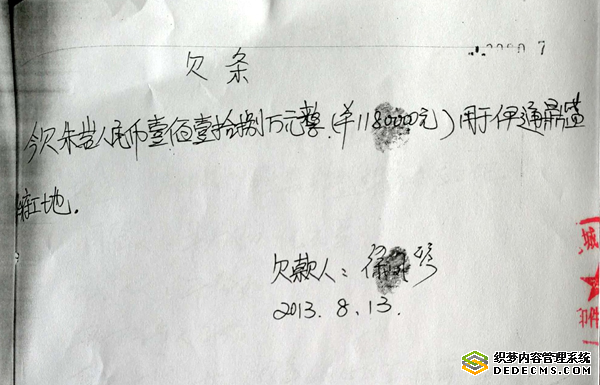 欠条
今欠朱岩人民币壹佰壹拾捌万元整.(¥1180000元)用于伊通房蓝
工地.
欠款人:徐
2013.8.13.
城
织梦内容管理系统
DEDECMS.COM